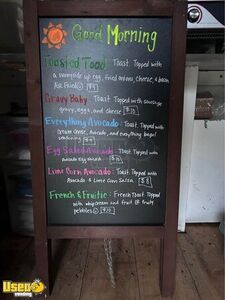 Good Morning
Toasted Toad: Toast. Topped with
a sunnyside up egg, fried onion, cheese, & bacon
Gravy Baby: Toast Topped with sausage
gravy, eggs, and cheese $10
Everything Avocado: Toast. Topped with
cream cheese, Avocado, and everything bagel
seasoning
Egg Salad Avocado: Toast. Topped with
avocado egg salad $10
Lime Corn Avocado: Toast. Topped with
Avocado & Lime Corn Salsa $8
French & Fruitie: French Toast. Topped
with whip cream and fruit & fruity
pebbles $10